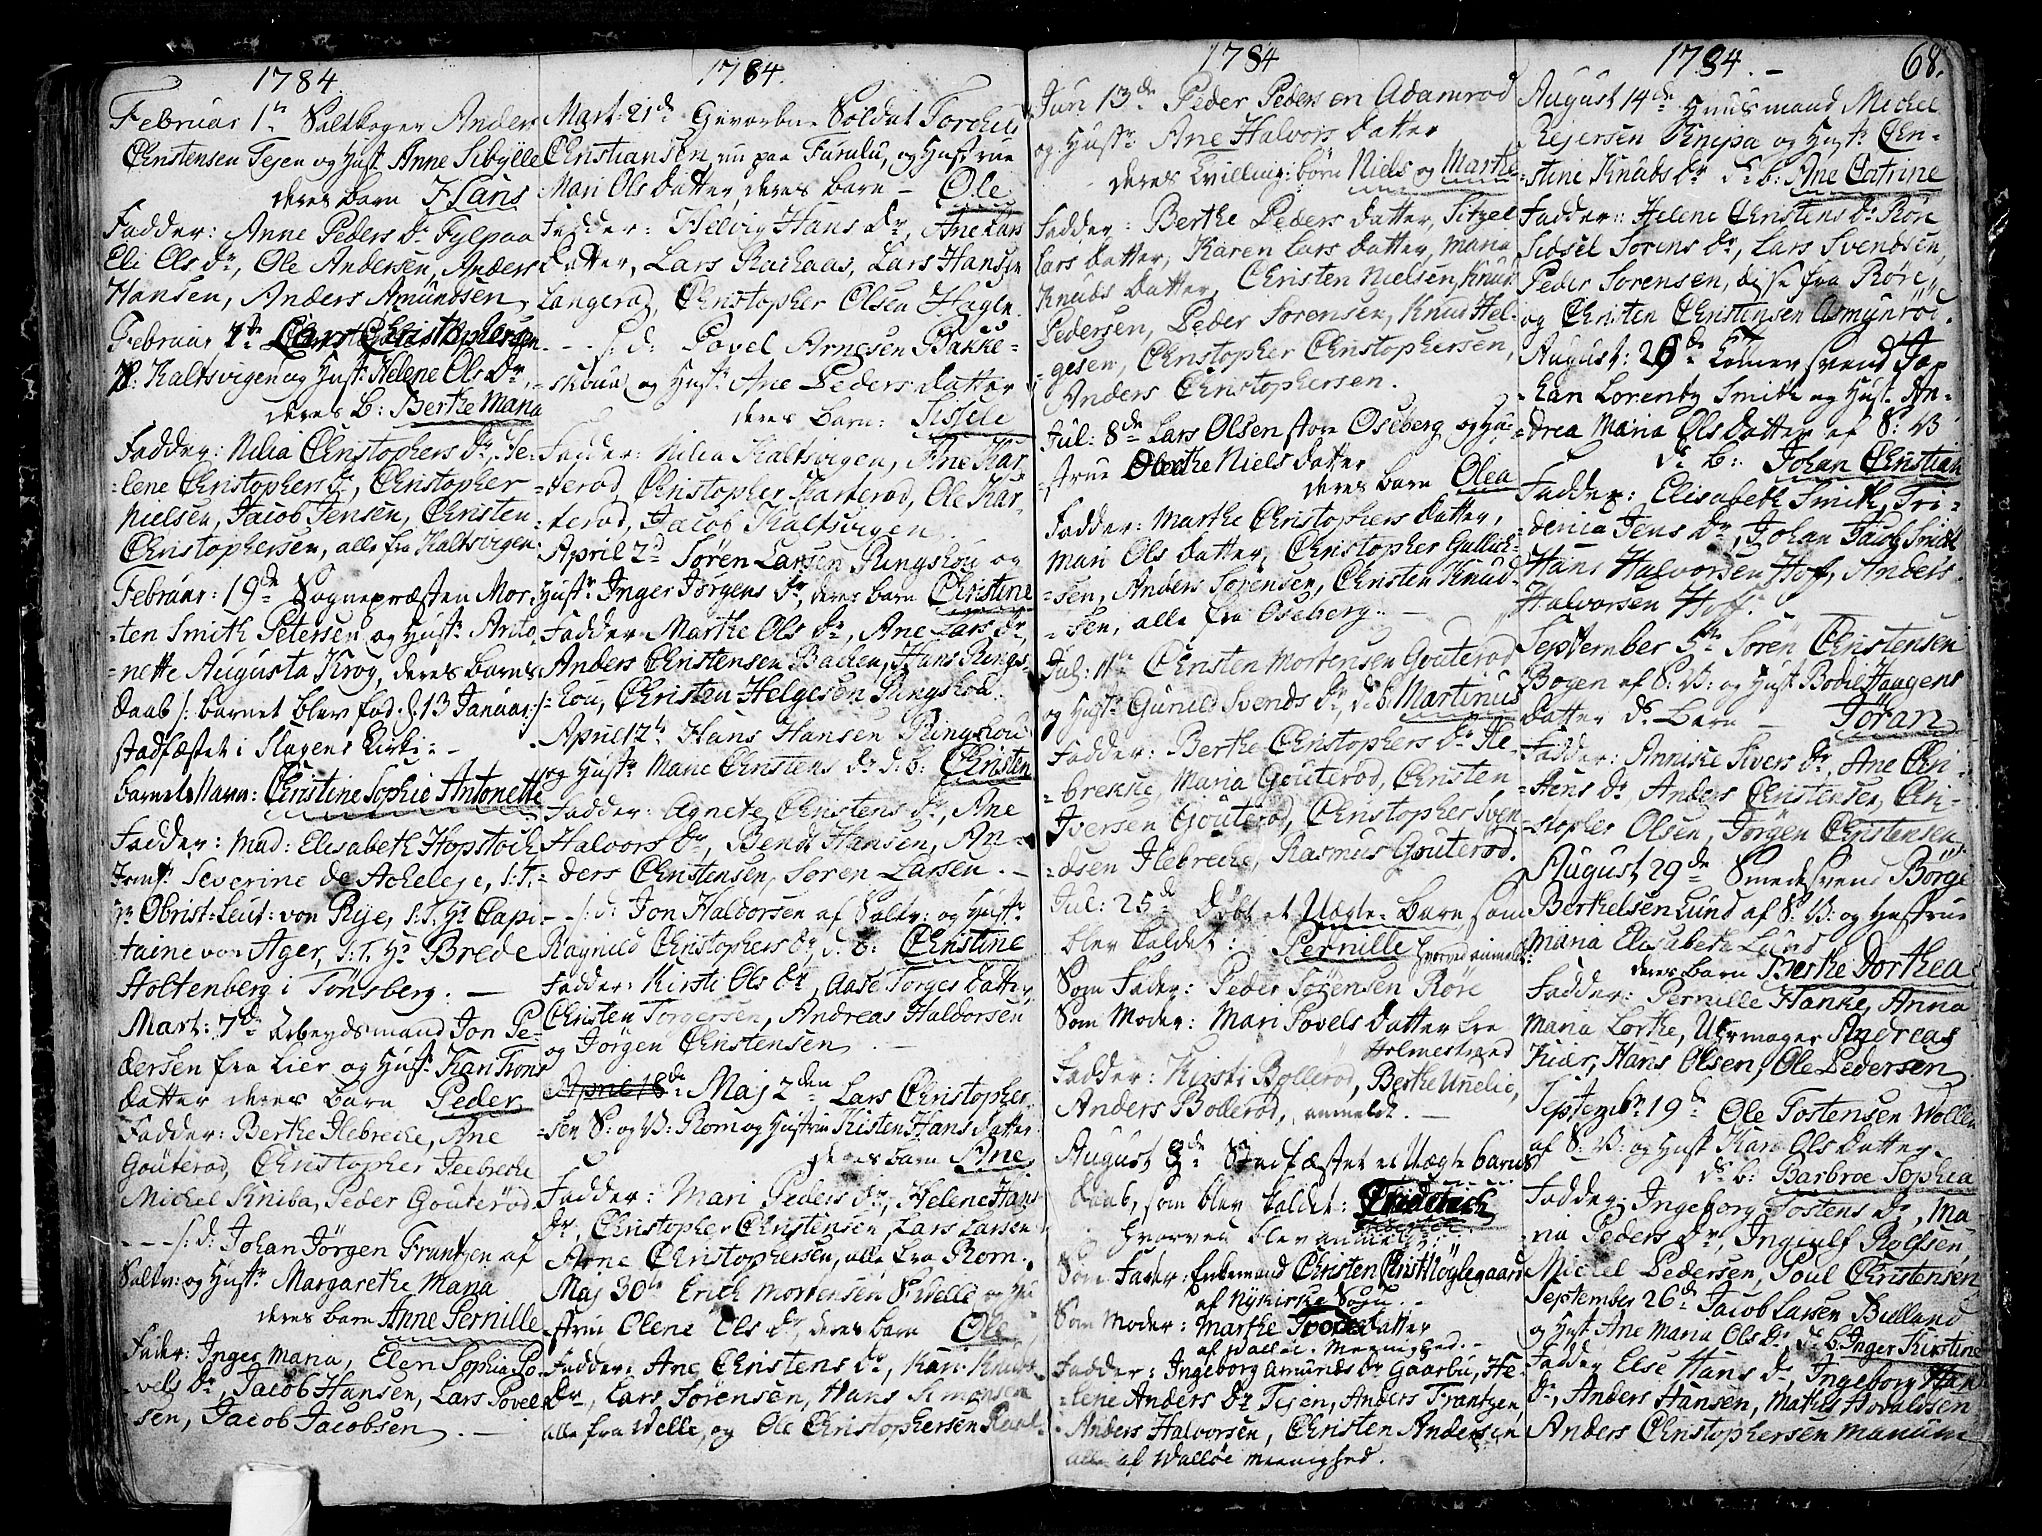 1784.
Februar 1te Saltkoger Anders
Christensen Tejen og Hust. Anne Sibylle
deres barn Hans
Fadder: Anne Peders Dr Fylpaa
Eli Ols Dr, Ole Andersen, Anders
Hansen, Anders Amundsen,
Februar 7de Lars Christophersen
Kaltsvigen og Hust: Helene Ols Dr,
deres B: Berthe Maria
Fadder: Nilia Christophers Dr, He-
-lene Christophers Dr, Christopher
Nielsen, Jacob Jensen, Christen
Christophersen, alle fra Kaltsvigen
Februar: 19de Sognepræsten Mor-
-ten Smith Petersen og Hustr Anto-
-nette Augusta Krog, deres barns
Daab /: barnet blev fød d. 13 Januar :/
stadfæstet i Slagens Kirke: -
barnets Navn: Christine Sophie Antonette
Fadder: Mad: Elisabeth Hopstock
Jomfr Severine de Acheleje, S:T:
Hr Obrist-Leut: von Rye, S:T. Hr Capi-
taine von Ager, S:T. Hr Brede
Stoltenberg i Tønsberg. -
Mart: 7de Arbeydsmand Jon Pe-
dersen fra Lier og Hustr Kari Trons
datter deres barn Peder
Fadder: Berthe Ilebreche, Ane
Gouterød, Christopher Ileebreche
Michel Kniba, Peder Gouterød.
- - - /: d: Johan Jørgen Frantzen af
Saltv: og Hustr Margarethe Maria
deres barn Anne Pernille
Fader: Inger Maria, Elen Sophia Po-
-vels Dr, Jacob Hansen, Lars Povel-
sen, Jacob Jacobsen. -
1784.
Mart: 21de Gevorbne Soldat Torchel
Christiansen, nu paa Furulu, og Hustrue
Mari Ols Datter, deres barn - Ole
Fadder: Helvig Hans Dr, Ane Lars
Datter, Lars Rachaas, Lars Hansen
Langerød, Christopher Olsen Hagen
- - - /: d: Povel Arnesen Bakke-
-skouu og Hustr Ane Peders Datter
deres barn: Sissele
Fadder: Nilia Kaltsvigen, Ane Kar-
-terød, Christopher Karterød, Ole Kar-
-terød, Jacob Kaltsvigen
April 2d Søren Larsen Ringshou og
Hustr Inger Jørgens Dr, deres barn Christine
Fadder: Marthe Ols Dr, Ane Lars Dr,
Anders Christensen Bachen, Hans Rings-
-hou, Christen Helgesen Ringshou.
April 12te Hans Hansen Ringshoud
og Hustr Marie Christens Dr D: B: Christen
Fadder: Agnete Christens Dr, Ane
Halvors Dr, Bendt Hansen, An-
-ders Christensen, Søren Larsen. -
- - - /: d: Jon Haldorsen af Saltv: og Hustr
Ragnild Christophers Dr, D: B: Christine
Fadder: Kirsti Ols Dr, Aase Torges Datter,
Christen Torgersen, Andreas Haldorsen
og Jørgen Christensen. -
April 18de: Maj 2den Lars Christopher-
sen S: og V: Rom og Hustrue Kisten Hans Datter
deres barn Ane
Fadder: Mari Peders Dr, Helene Hans
Dr, Christopher Christensen, Lars Larsen
Arne Christophersen, alle fra Rom.
Maj 30te Erich Mortensen Sr Welle og Hu-
strue Olene Ols Dr, deres barn Ole
Fadder: Ane Christens Dr, Kari Knuds
Dr, Lars Sørensen, Hans Simonsen
alle fra Welle, og Ole Christophersen
1784
Jun 13de Peder Pedersen Adamrød
og Hustr Ane Halvors Datter
deres Tvilling: børn Niels og Marthe
Fadder: Berthe Peders Datter, Sitzel
Lars Datter, Karen Lars Datter, Maria
Knuds Datter, Christen Nielsen, Knud
Pedersen, Peder Sørensen, Knud Hel-
-gesen, Christopher Christophersen,
Anders Christophersen.
Jul: 8de Lars Olsen store Oseberg og Hu-
-strue Berthe Niels Datter
deres barn Olea
Fadder: Marthe Christophers Datter,
Mari Ols Datter, Christopher Gullich-
sen, Anders Sørensen, Christen Knud-
-sen, alle fra Oseberg. -
Jul: 11te Christen Mortensen Gouterød
og Hustr Gunild Svends Dr, D. B. Martinus
Fadder: Berthe Christophers Dr Ile-
-breche, Maria Gouterød, Christen
Iversen Gouterød, Christopher Sven-
-dsen Ilebreche, Rasmus Gouterød.
Jul: 25de døbt et Uægte barn, som
blev kaldet: Pernille hvorved anmeldt
Som Fader: Peder Sørensen Røre
Som Moder: Mari Povels Datter fra
Holmestrand
Fadder: Kirsti Bollerød, Berthe Unelie,
Anders Bollerød, anmeldt. -
August 8de Stadfæstet et Uægte barns
Daab, som blev kaldet: Friderich
hvorved blev anmeldt:
Som Fader: Enkemand Christen Christ: Føglegaard
af Nykirke Sogn. -
Som Moder: Marthe Tordsdatter
af Walløe Meenighed. -
Fadder: Ingeborg Amunds Dr Gaarbu, He-
-lene Anders Dr Tejen, Anders Frantzen,
Anders Halvorsen, Christen Andersen
alle af Walløe Meenighed.
1784. - 68.
August 14de Huusmand Michel
Rejersen Knipa og Hustr Chri-
-stine Knuds Dr D: b: Ane Catrine
Fadder: Helene Christens Dr Røre
Sidsel Sørens Dr, Lars Svendsen,
Peder Sørensen, disse fra Røre,
og Christen Christensen Asmynrød.
August: 26de Tømersvend Jo-
-han Lorentz Smith og Hustr An-
-drea Maria Ols datter af S: V:
D: B: Johan Christian
Fadder: Elisabeth Smith, Fri-
-derica Jens Dr, Johan Jacob Smith
Hans Halvorsen Hof, Anders
Halvorsen Hoff.
September 5te Søren Christensen
Bogen af S: V: og Hustr Bodil Haagens
Datter Ds Barn - Jöran
Fadder: Annike Sivers Dr, Ane Chri-
-stens Dr, Anders Christensen, Chri-
-stopher Olsen, Jørgen Christensen.
August 29de Smedesvend Börge
Berthelsen Lund af S: V: og Hustrue
Maria Elisabeth Lund
deres barn Berthe Dorthea
Fadder: Pernille Hanke, Anna
Maria Lorthe, Uhrmager Andreas
Kiær, Hans Olsen, Ole Pedersen
Septembr 19de Ole Tostensen Wollen
af S: V: og Hust Kari Ols Datter
Ds b: Barbroe Sophia
Fadder: Ingeborg Tostens Dr, Ma-
-ria Peders Dr, Ingeulf Rolfsen,
Michel Pedersen, Poul Christensen
September 26de Jacob Larsen Bulland
og Hust Ane Maria Ols Dr, Ds b. Inger Kirstine
Fadder Else Hans Dr, Ingeborg Hans
Dr, Anders Hansen, Mathis Hovaldsen
Anders Christophersen Manum